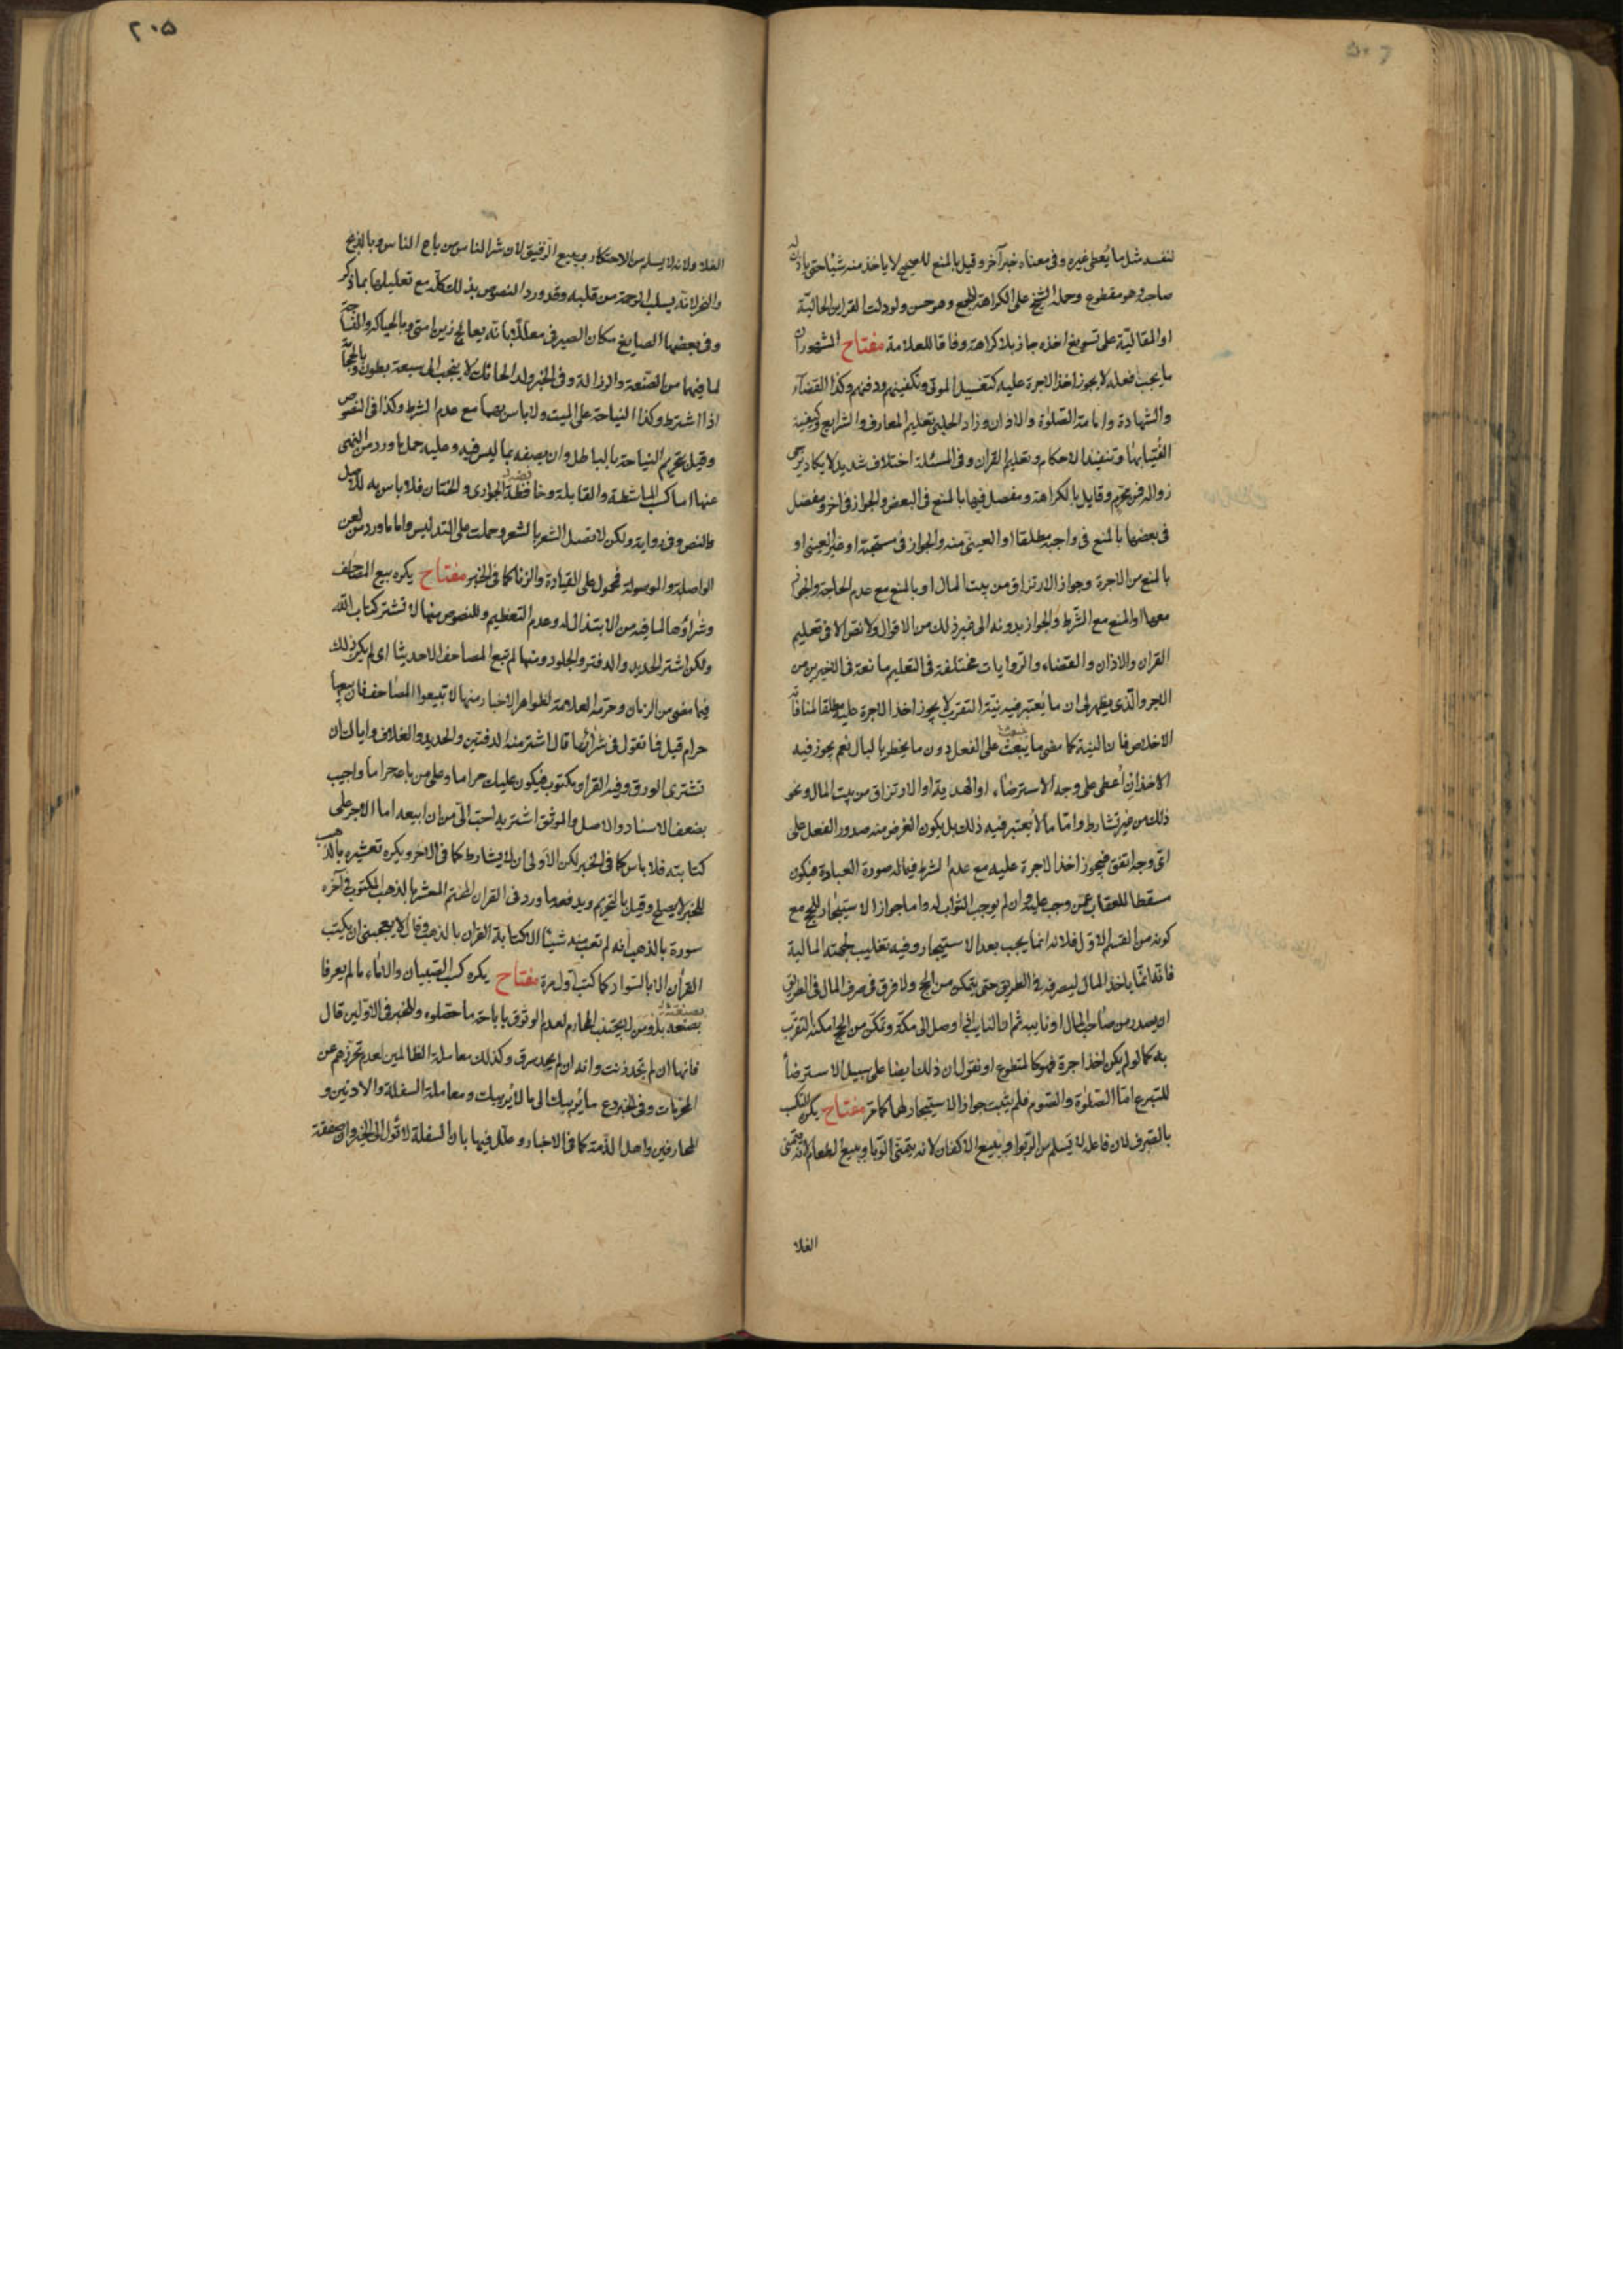 لنفسه مثل ما يُعطى غيره و فى معناه خبر آخر و قيل بالمنع للصحيح لا ياخذ منه شيئا حتى ياذن له
صاحبه و هو مقطوع و حمله الشيخ على الكراهة للجمع و هو حسن و لو دلت القراين الحاليّة
او المقاليّة على تسويغ اخذه جاز بلا كراهة وفاقا للعلامة مفتاح المشهور ان
ما يجب فعله لا يجوز اخذ الاجرة عليه كتغسيل الموتى و تكفينهم و دفنهم و كذا القضاء
و الشهادة و امامة الصلوة و الاذان و زاد الحلبى تعليم المعارف و الشرايع و كيفية
الفُتيا بها و تنفيذ الاحكام و تعليم القران و فى المسئلة اختلاف شديد لا يكاد يرجى
زواله فمن محرّم و قايل بالكراهة و مفصل فيها بالمنع فى البعض و الجواز فى اخر و مفصل
فى بعضها بالمنع فى واجبه مطلقا او العينى منه و الجواز فى مستحبة او غير العينى او
بالمنع من الاجرة و جواز الارتزاق من بيت المال او بالمنع مع عدم الحاجة و الجواز
معها او المنع مع الشّرط و الجواز بدونه الى غير ذلك من الاقوال و لا نص الا فى تعليم
القران و الاذان و القضاء و الروايات مختلفة فى التعليم مانعة فى الاخيرين من
الاجر و الّذى يظهر لى ان ما يُعتبر فيه نيّة التقرب لا يجوز اخذ الاجرة عليه مطلقا لمنافاته
الاخلاص فان النية كما مضى ما يَبعث على الفعل دون ما يخطر بالبال نعم يجوز فيه
الاخذ ان أعطى على وجه الاسترضاء او الهدية او الارتزاق من بيت المال و نحو
ذلك من غير تشارط و امّا ما لا يُعتبر فيه ذلك بل يكون الغرض منه صدور الفعل على
اىّ وجه اتفق فيجوز اخذ الاجرة عليه مع عدم الشرط فيما له صورة العبادة فيكون
مسقطا للعقاب عمّن وجب عليه و ان لم يوجب الثواب له و اما جواز الاستيجار للحج مع
كونه من القسم الاوّل فلانه انما يجب بعد الاستيجار و فيه تغليب لجهته المالية
فانّه انمّا ياخذ المال ليصرفه فى الطريق حتى يتمكن من الحج و لا فرق فى صرف المال فى الطريق
ان يصدر من صاحب المال او نايبه ثم ان النايب اذا وصل الى مكّة و تمكّن من الحج امكنه التقرّب
به كما لو لم يكن اخذ اجرة فهو كالمتطوع او نقول ان ذلك ايضا على سبيل الاسترضا
للتبرع امّا الصلوة و الصّوم فلم يثبت جواز الاستيجار لهما كما مرّ مفتاح يكره التكسّب
بالصّرف لان فاعله لا يسلم من الربوا و ببيع الاكفان لانه يتمنّى الوبا و ببيع الطعام لانه يتمنى
الغلا
٢٠٥
الغلاء و لانه لا يسلم من الاحتكار و ببيع الرّقيق لان شر الناس من باع الناس و بالذبح
و النحر لانّه يسلب الرحمة من قلبه و قد ورد النصوص بذلك كلّه مع تعليلها بما ذكر
و فى بعضها الصايغ مكان الصيرفى معلّلا بانّه يعالج زين امتى و بالحياكة و النساجة
لما فيهما من الضّعة و الرذالة و فى الخبر ولد الحائك لا ينجب الى سبعة بطون و بالحجامة
اذا اشترط و كذا النياحة على الميت و لا باس بهما مع عدم الشرط و كذا فى النصوص
و قيل بتحريم النياحة بالباطل و ان يصفه بما ليس فيه و عليه حمل ما ورد من النهى
عنها اما كسب الماشطة و القابلة و خافضة الجوارى و الختان فلا باس به للاصل
و النص و فى رواية و لكن لا تصل الشعر بالشعر و حملت على التدليس و اما ما ورد من لعن
الواصلة و الموصولة فمحمول على القيادة و الزنا كما فى الخبر مفتاح يكره بيع المصاحف
و شراؤها لما فيه من الابتذال له و عدم التعظيم و للنصوص منها لا تشتر كتاب اللّه
و لكن اشتر الحديد و الدفتر و الجلود و منها لم تبع المصاحف الا حديثا اى لم يكن ذلك
فيما مضى من الزمان و حرّمه العلامة لظواهر الاخبار منها لا تبيعوا المصاحف فان بيعها
حرام قيل فما تقول فى شرائها قال اشتر منه الدفتين و الحديد و الغلاف و اياك ان
تشترى الورق و فيه القران مكتوب فيكون عليك حراما و على من باعه حراما و اجيب
بضعف الاسناد و الاصل و الموثق اشتريه احبّ الىّ من ان ابيعه اما الاجر على
كتابته فلا باس كما فى الخبر لكن الاولى ان لا يشارط كما فى الاخر و يكره تعشيره بالذهب
للخبر لا يصلح و قيل بالتحريم و يدفعه ما ورد فى القران المختم المعشر بالذهب المكتوب فى آخره
سورة بالذهب انه لم تعب منه شيئا الا كتابة القران بالذهب و قال لا يعجبنى ان يكتب
القرأن الا بالسّواد كما كتب اوّل مرة مفتاح يكره كسب الصّبيان و الاماء ما لم يعرفا
بصنعة بل و من لا يجتنب المحارم لعدم الوثوق باباحة ما حصّلوه و للخبر فى الاولين قال
فانها ان لم تجد زنت و انه ان لم يجد سرق و كذلك معاملة الظالمين لعدم تحرزهم عن
المحرّمات و فى الخبر دع ما يُريبك الى ما لا يُريبك و معاملة السفلة و الادنين و
المحارفين و اهل الذمّة كما فى الاخبار و علّل فيها بان السفلة لا تؤل الى الخير و ان صفقة